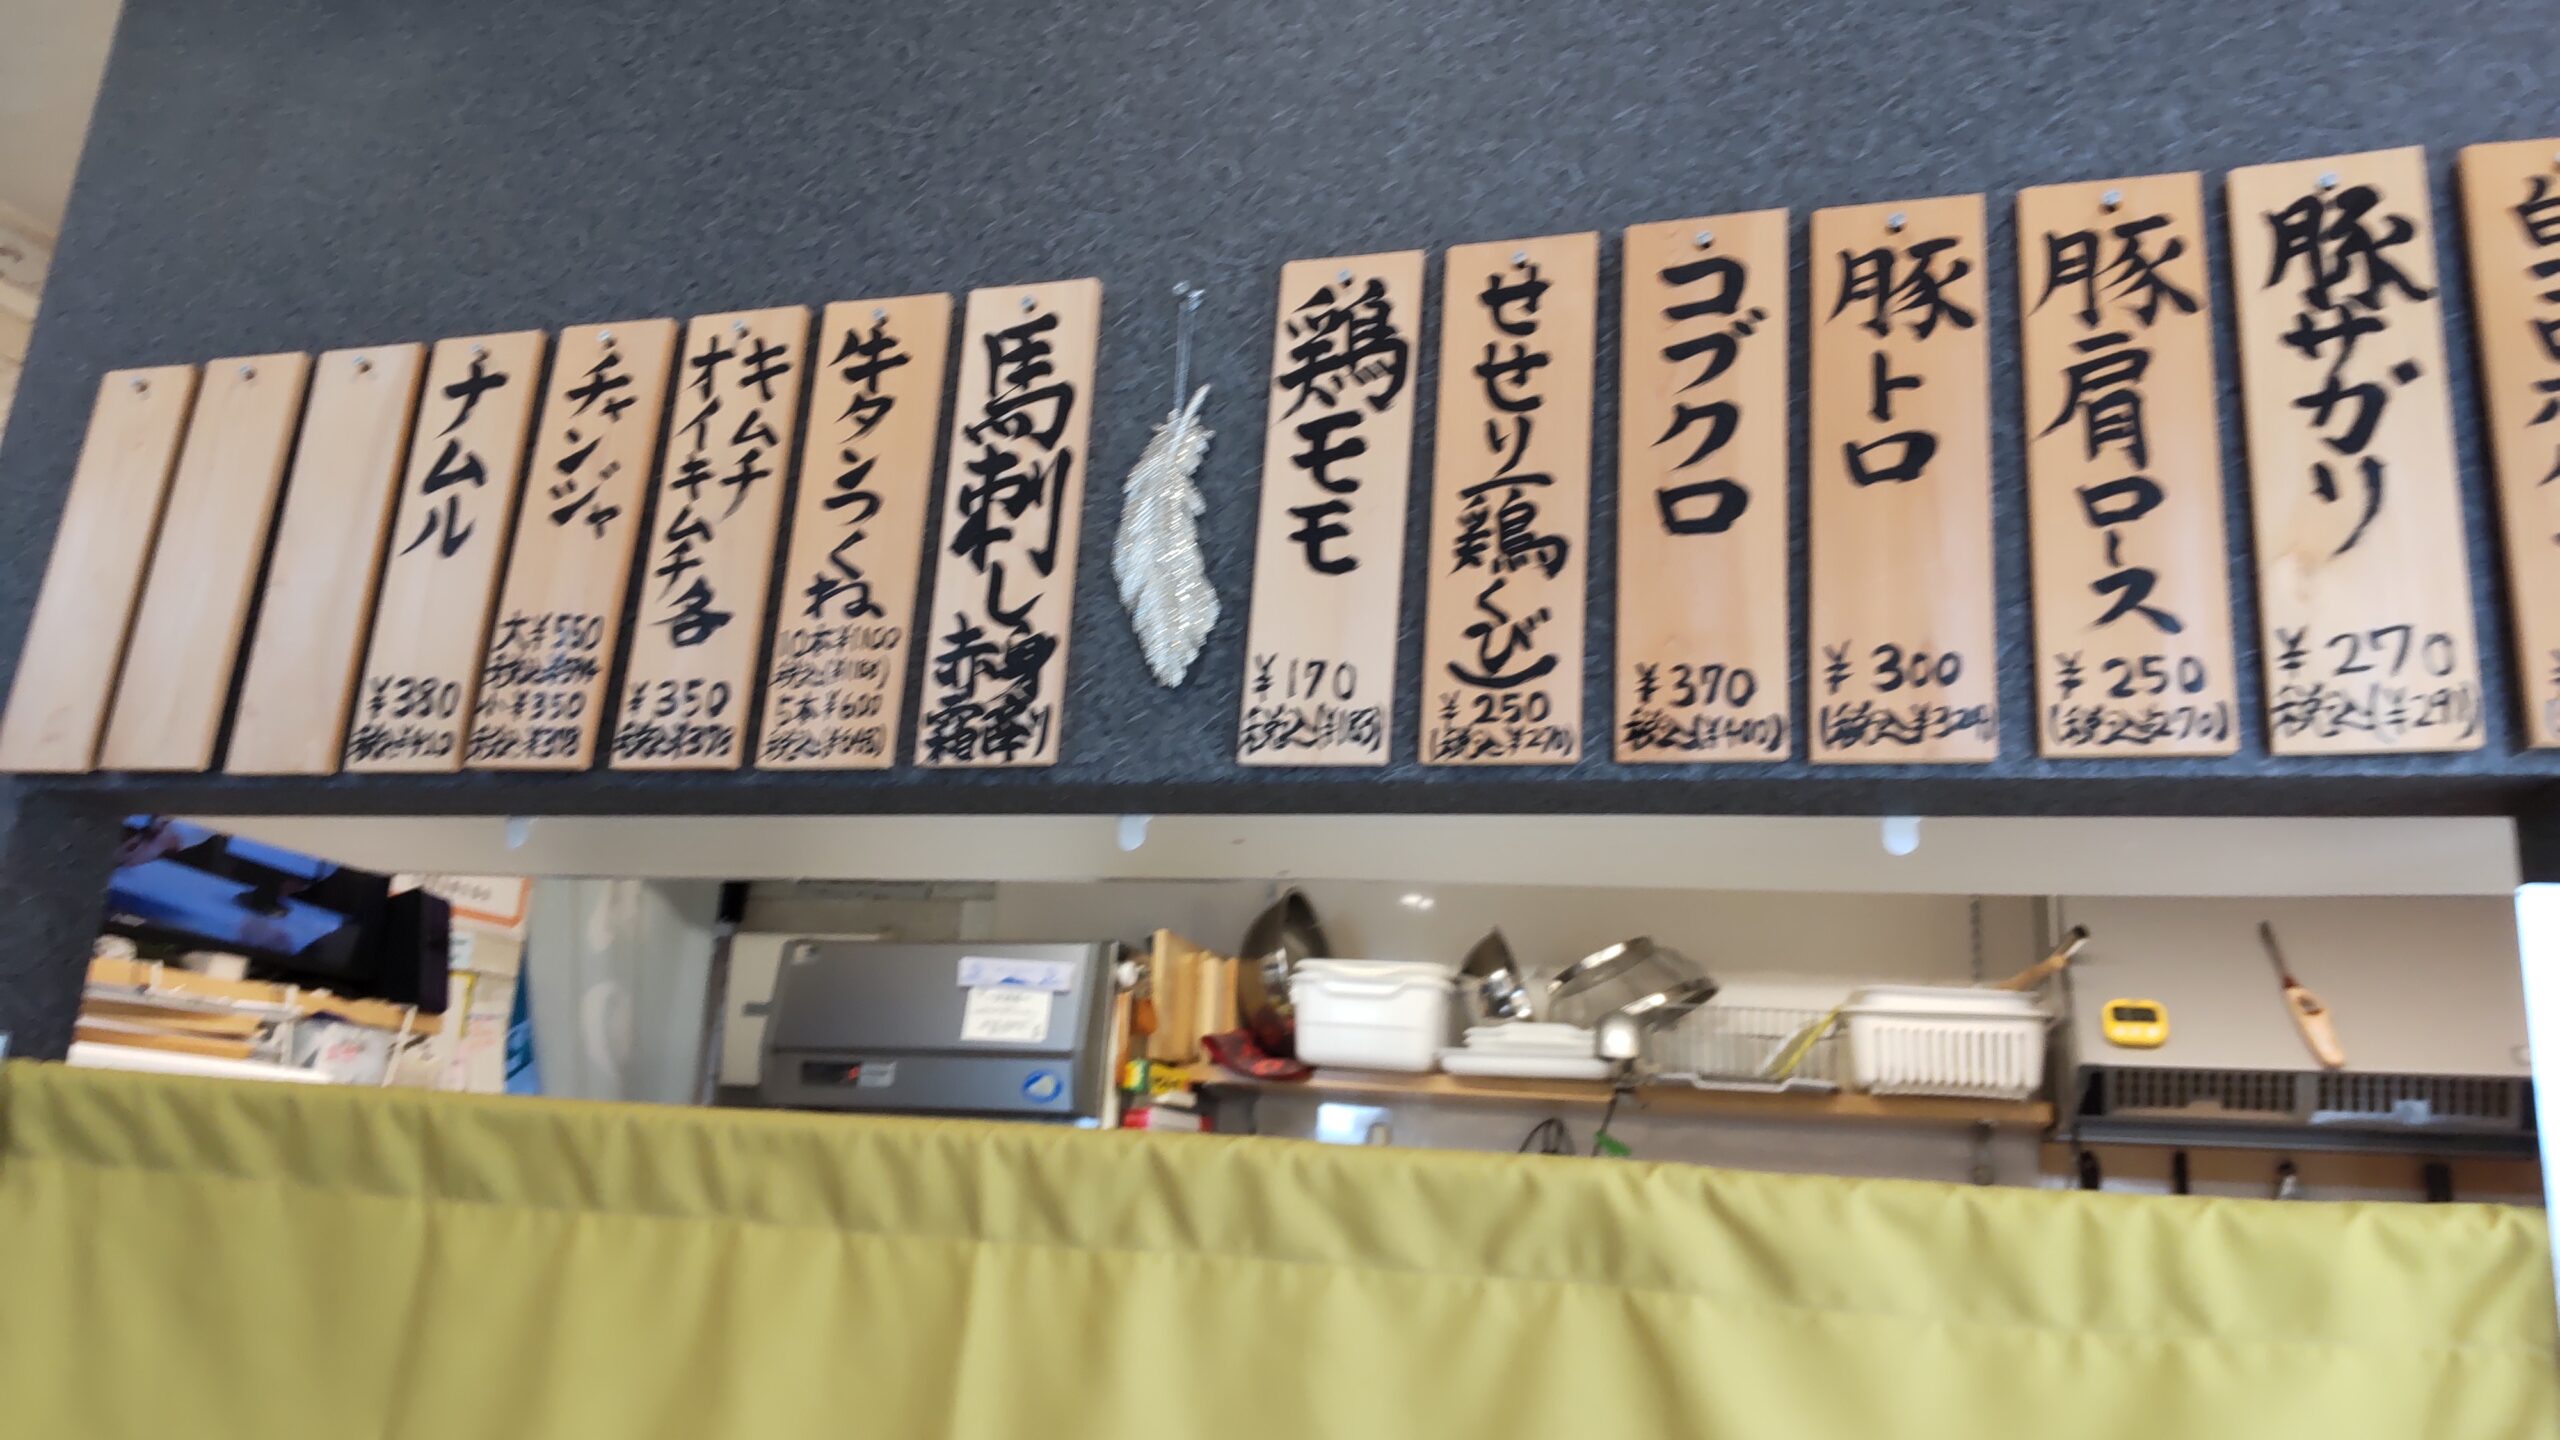 豚サガリ
¥270
税込(¥291)
豚肩ロース
¥250
(税込¥270)
豚トロ
¥300
(税込¥324)
コブクロ
¥370
税込(¥400)
せせり(鶏くび)
¥250
(税込¥270)
鶏モモ
¥170
税込(¥183)
馬刺し
赤身
霜降り
牛タンつくね
10本¥1100
5本¥600
税込(¥648)
キムチ
オイキムチ各
¥350
税込¥378
チャンジャ
大¥550
税込¥594
小¥350
税込¥378
ナムル
¥380
税込¥410